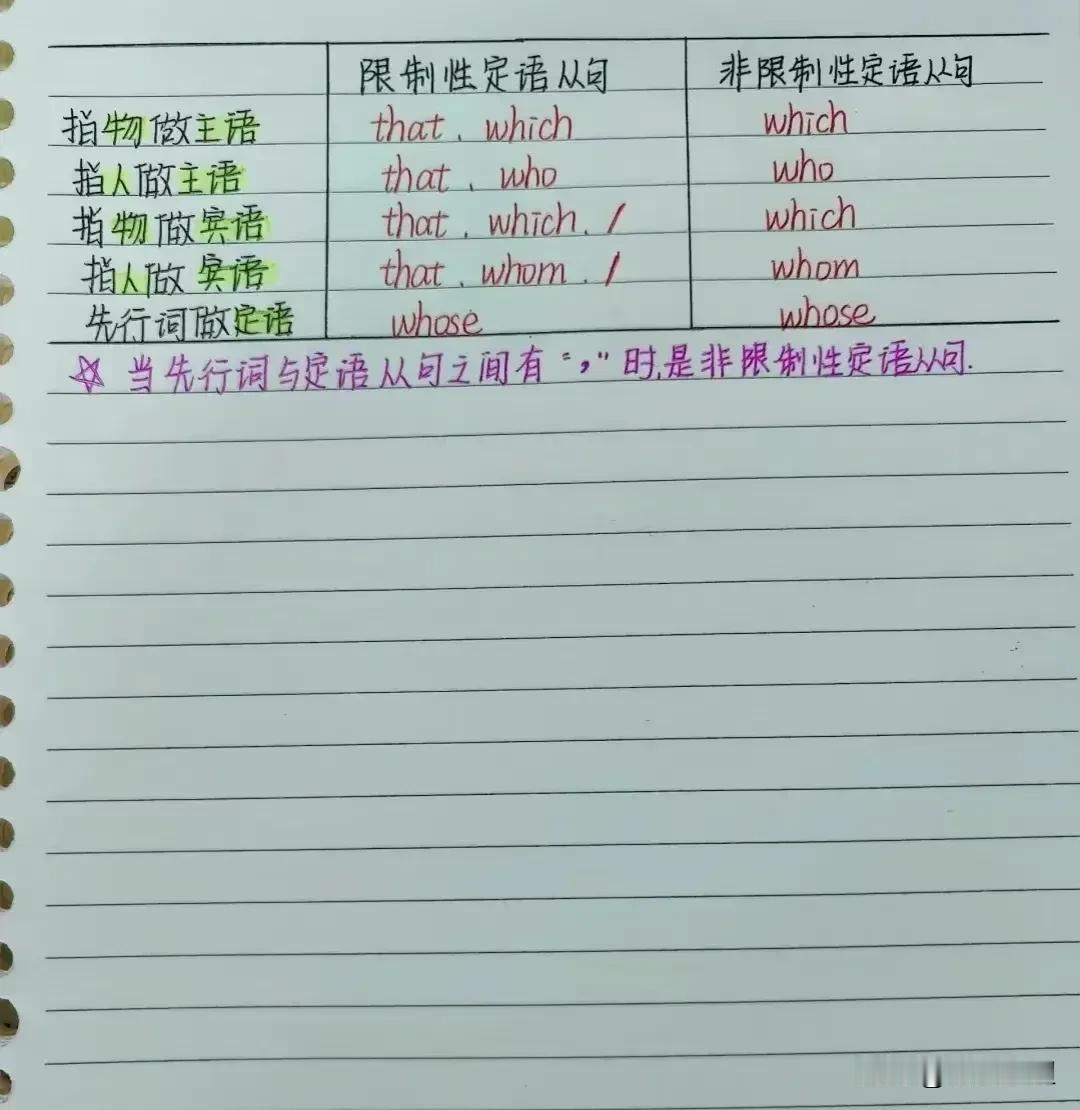 限制性定语从句 非限制性定语从句
指物做主语 that、which which
指人做主语 that、who who
指物做宾语 that、which、/ which
指人做宾语 that、whom、/ whom
先行词做定语 whose whose
☆ 当先行词与定语从句之间有“,”时,是非限制性定语从句.